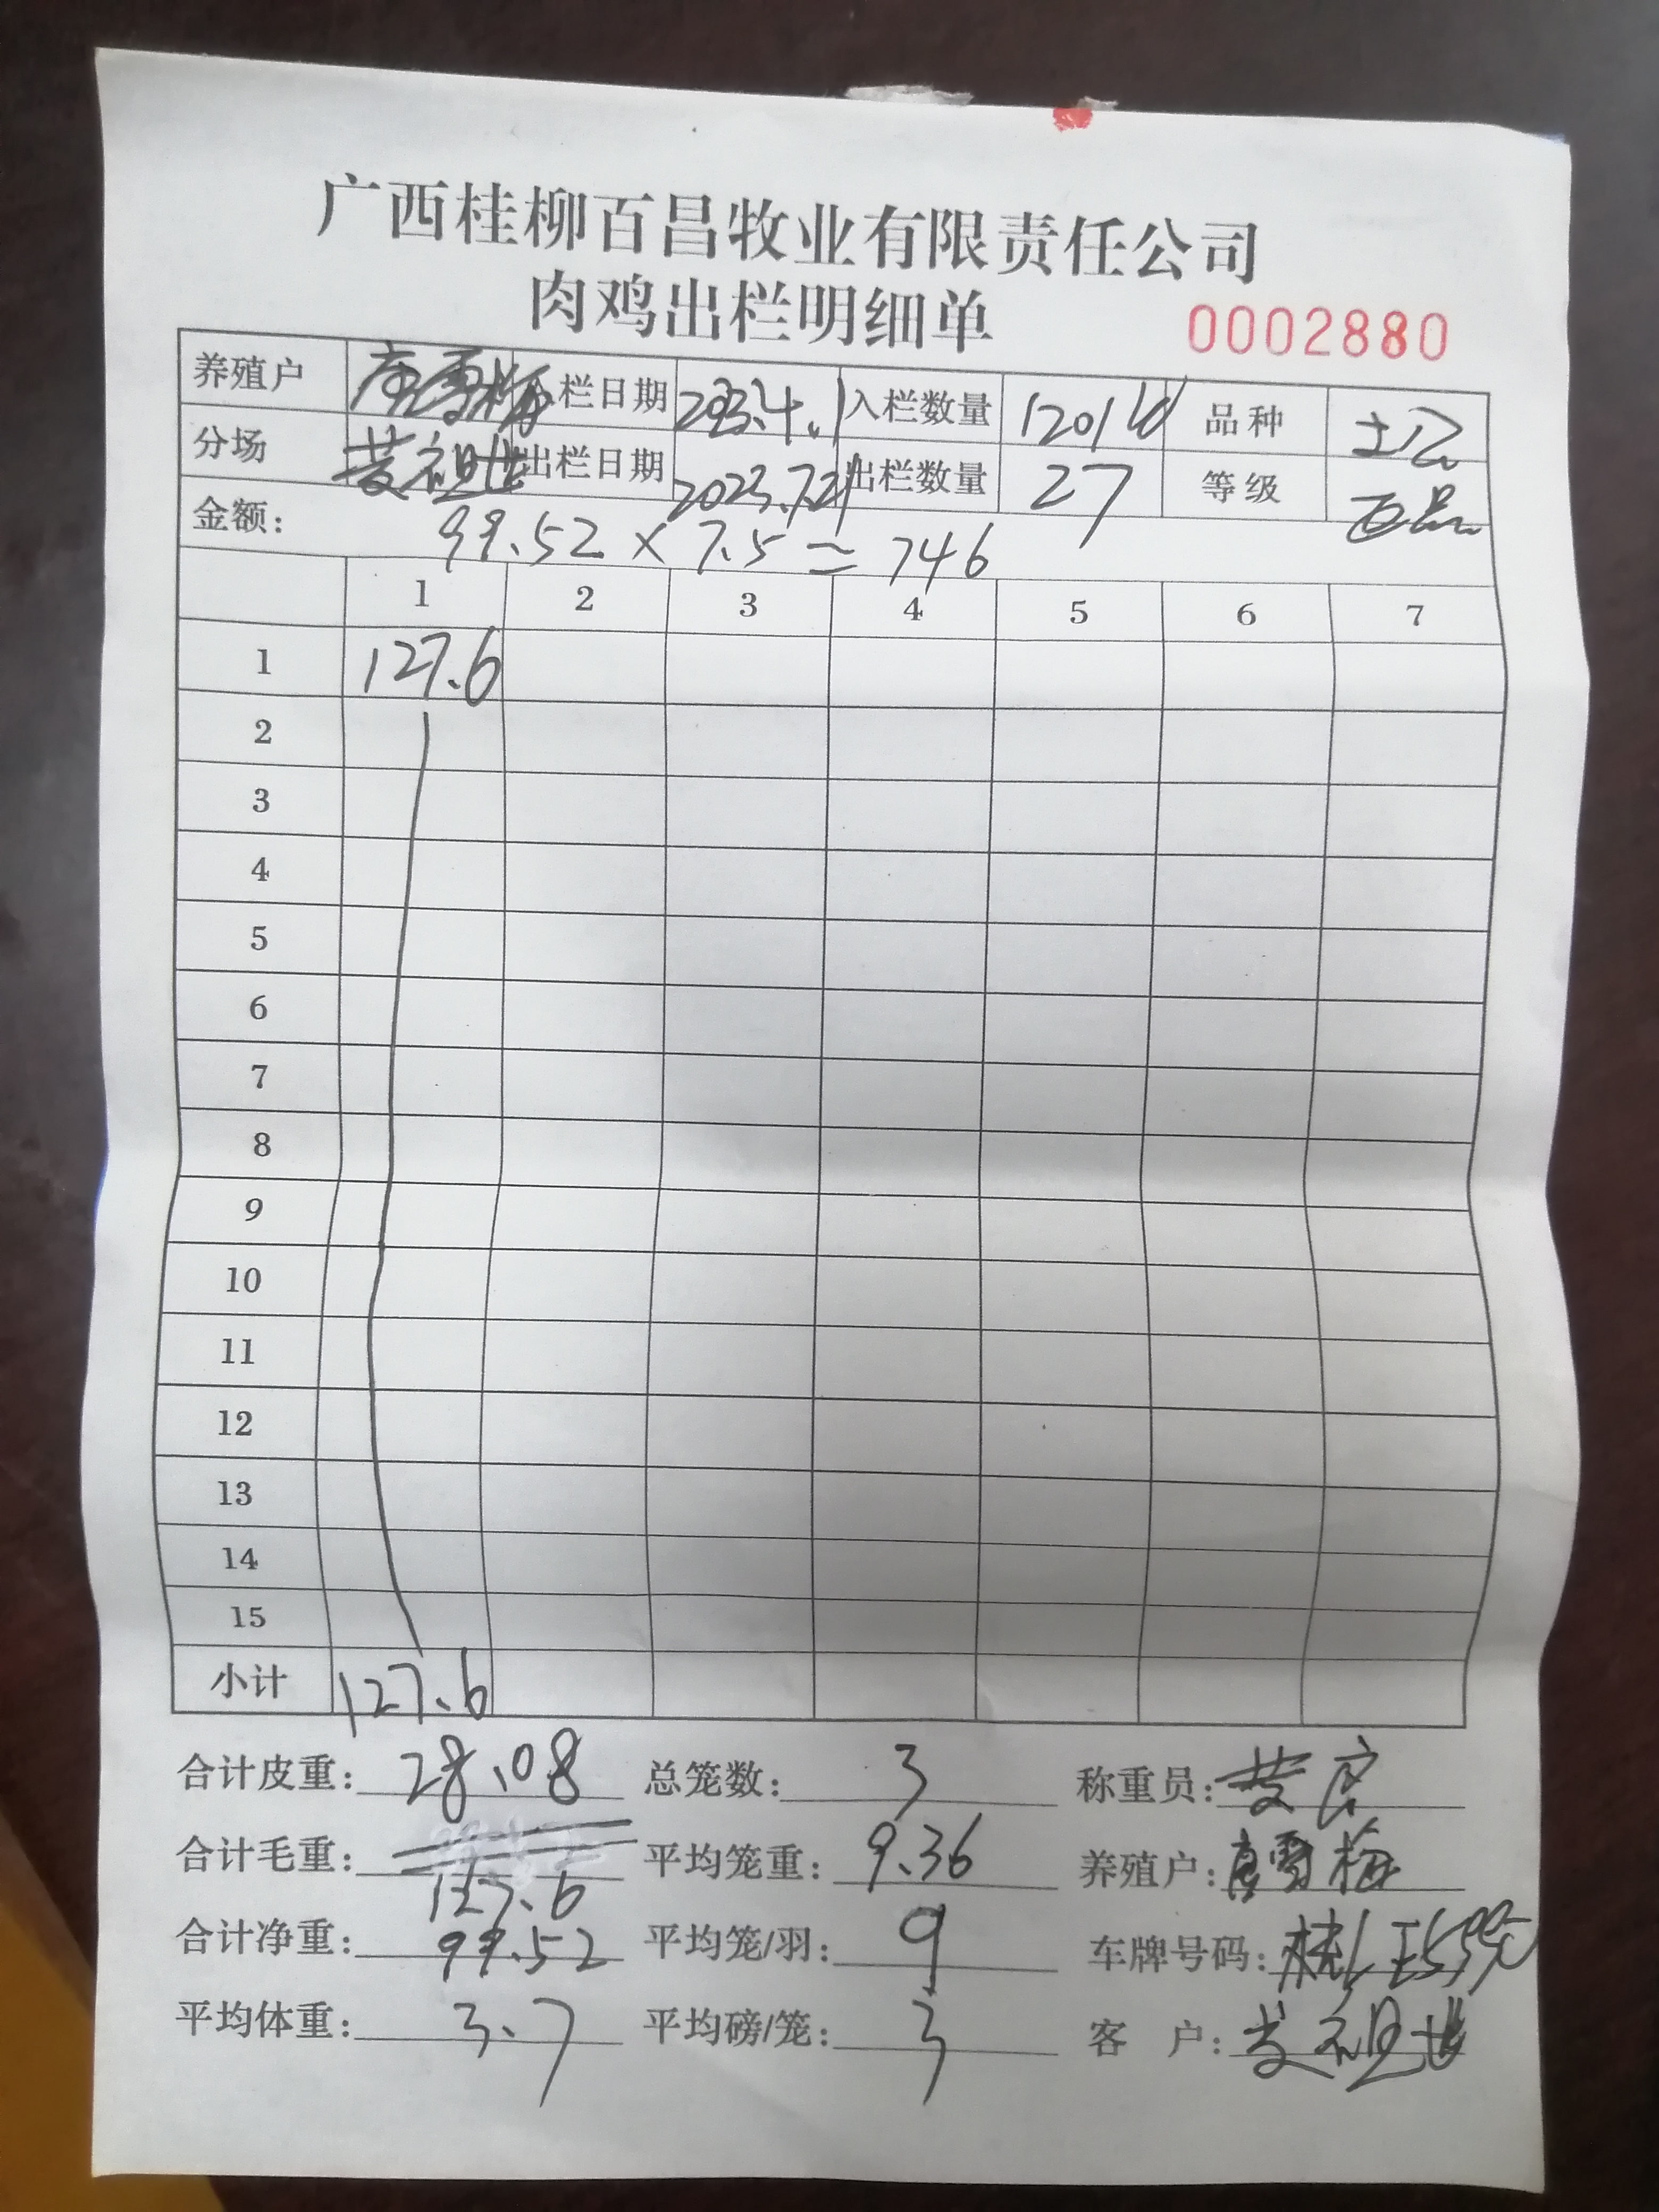 广西桂柳百昌牧业有限责任公司
肉鸡出栏明细单
0002880
养殖户 唐雪梅 入栏日期 2023.4.1 入栏数量 12010 品种 土公
分场 黄祖世 出栏日期 2023.7.21 出栏数量 27 等级
金额: 99.52 × 7.5 = 746
1 2 3 4 5 6 7
1 127.6
2
3
4
5
6
7
8
9
10
11
12
13
14
15
小计 127.6
合计皮重: 28.08 总笼数: 3 称重员: 黄
合计毛重: 127.6 平均笼重: 9.36 养殖户: 唐雪梅
合计净重: 99.52 平均笼/羽: 9 车牌号码:
平均体重: 3.7 平均磅/笼: 3 客 户: 黄祖世